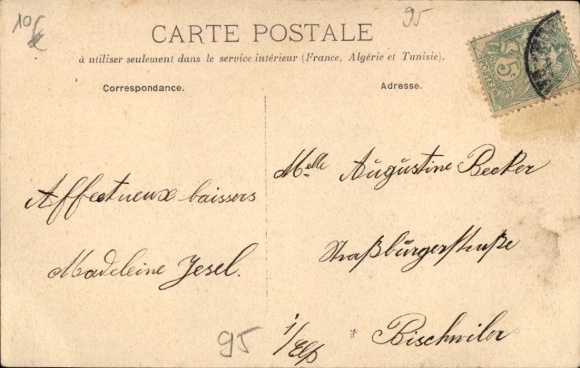 10€
95
CARTE POSTALE
à utiliser seulement dans le service intérieur (France, Algérie et Tunisie).
Correspondance.
Adresse.
Affectueux baisers
Madeleine Jesel.
Melle Augustine Becker
Straßburgerstraße
Bischwiler
i/Elß
95
POSTES
5